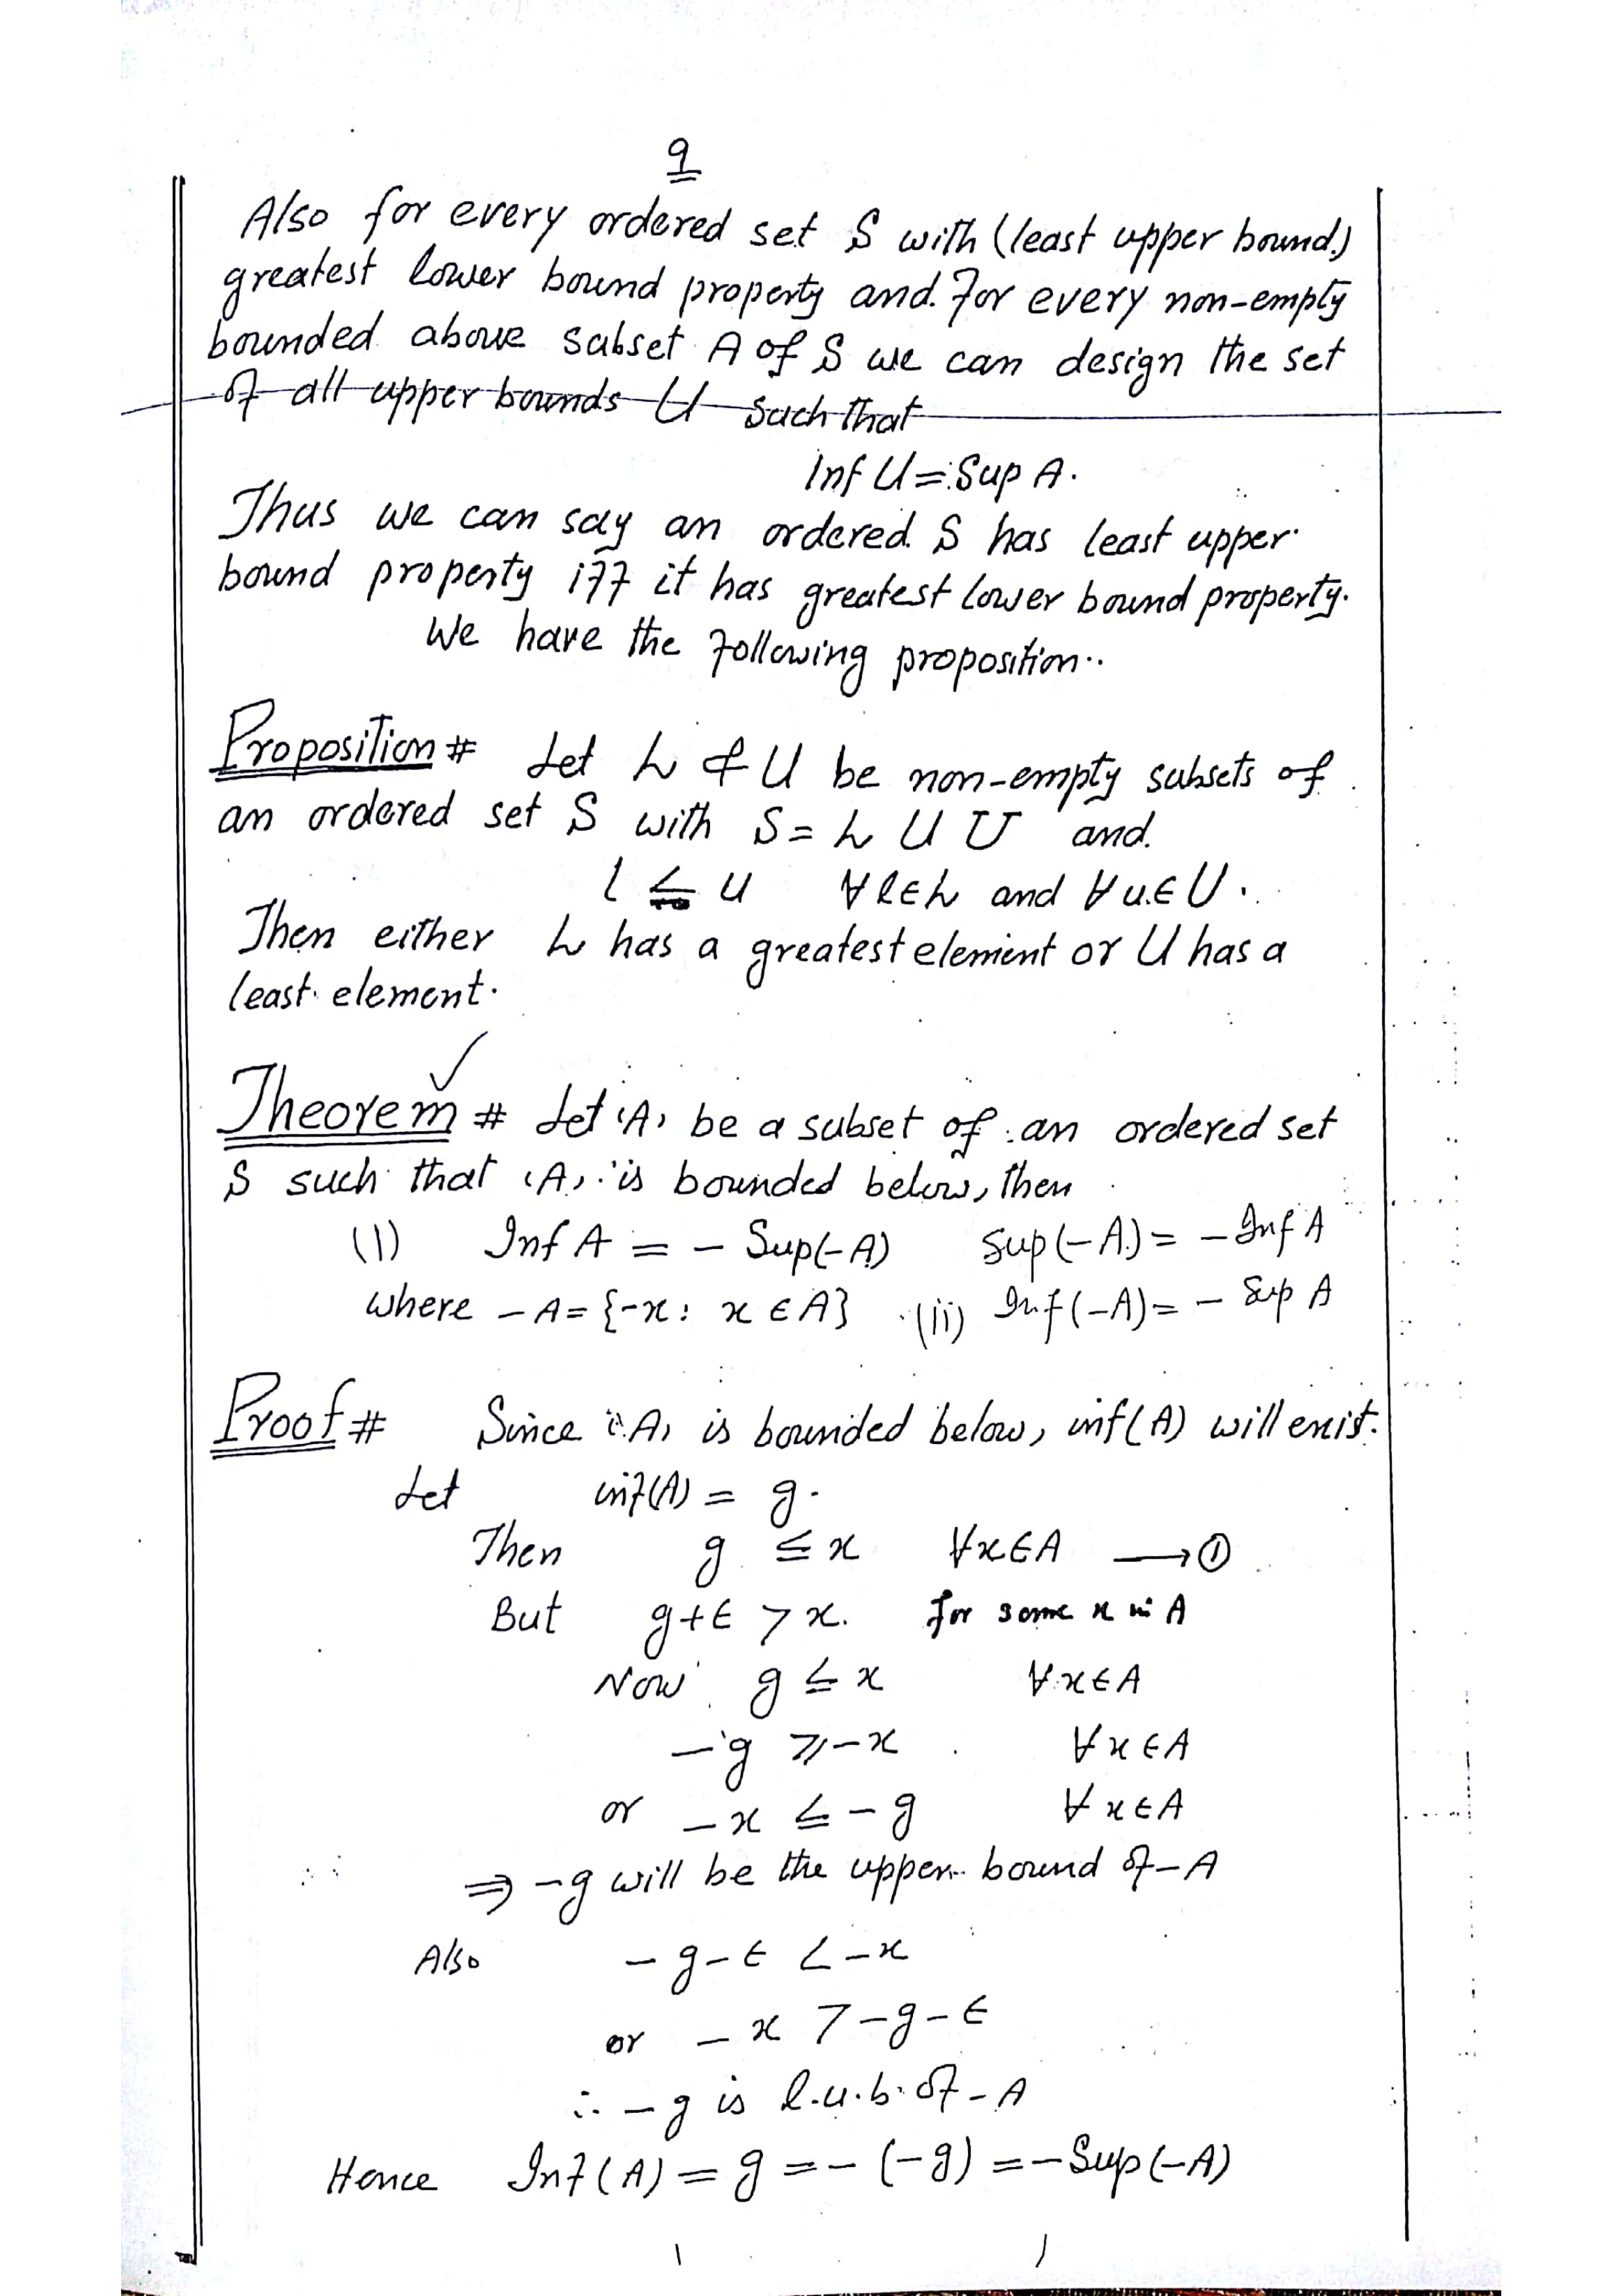 9
Also for every ordered set S with (least upper bound)
greatest lower bound property and for every non-empty
bounded above subset A of S we can design the set
of all upper bounds U such that
Inf U = Sup A.
Thus we can say an ordered S has least upper
bound property iff it has greatest lower bound property.
We have the following proposition..
Proposition # Let L & U be non-empty subsets of
an ordered set S with S = L U U and
l ≤ u ∀ l ∈ L and ∀ u ∈ U.
Then either L has a greatest element or U has a
least element.
Theorem # Let 'A' be a subset of an ordered set
S such that 'A' is bounded below, then
(1) Inf A = - Sup(-A) Sup(-A) = - Inf A
where -A = {-x : x ∈ A} (ii) Inf(-A) = - Sup A
Proof # Since 'A' is bounded below, inf(A) will exist.
Let inf(A) = g.
Then g ≤ x ∀ x ∈ A → ①
But g+ε > x. for some x in A
Now g ≤ x ∀ x ∈ A
-g ≥ -x ∀ x ∈ A
or -x ≤ -g ∀ x ∈ A
⇒ -g will be the upper bound of -A
Also -g-ε < -x
or -x > -g-ε
∴ -g is l.u.b. of -A
Hence Inf(A) = g = -(-g) = -Sup(-A)